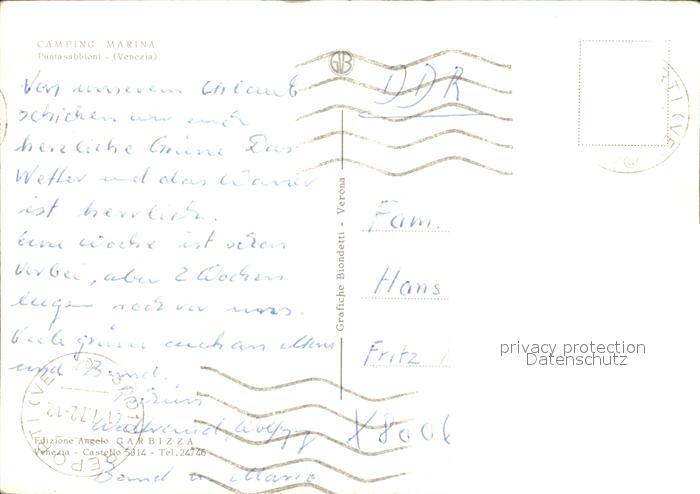 CAMPING MARINA
Puntasabbioni - (Venezia)
Von unserem Urlaub
schicken wir euch
herzliche Grüße Das
Wetter und das Wasser
ist herrlich.
Eine Woche ist schon
vorbei, aber 2 Wochen
liegen noch vor uns.
Viele Grüße auch an
und Bernd.
Waltraud, Wolfgg
Bernd u. Mario
Edizione Angelo GARBIZZA
Venezia - Castello 5314 - Tel. 24746
Grafiche Biondetti - Verona
GB
DDR
Fam.
Hans
Fritz
X8006
privacy protection
Datenschutz